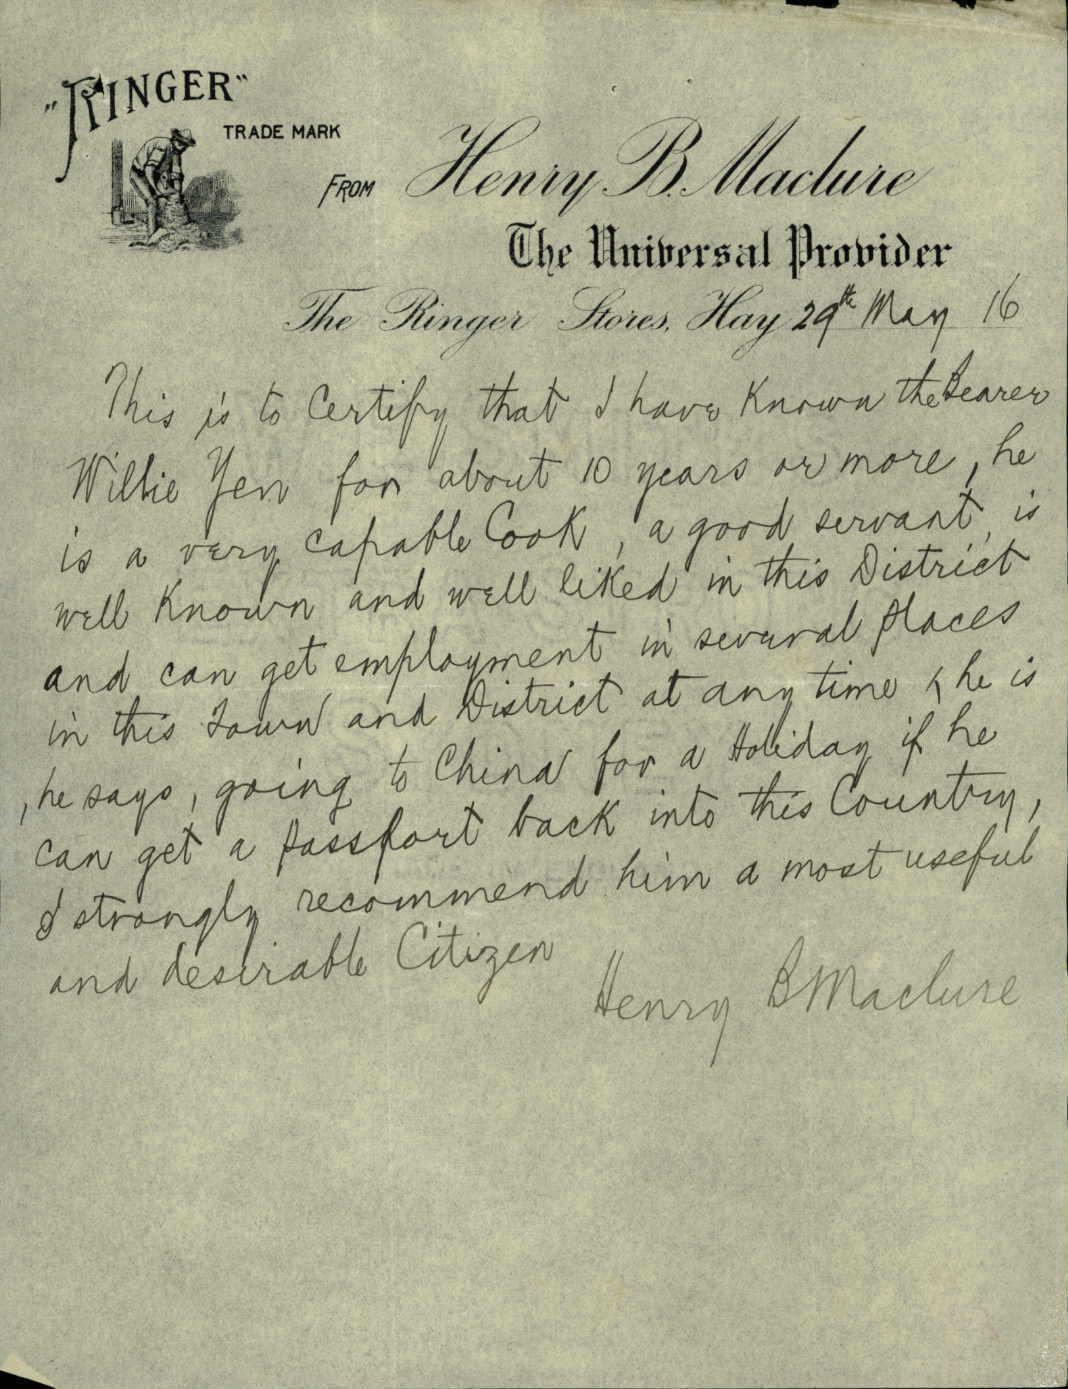 "RINGER"
TRADE MARK
FROM Henry B. Maclure
The Universal Provider
The Ringer Stores, Hay 29th May 16
This is to Certify that I have Known the Bearer
Willie Yen for about 10 years or more, he
is a very capable Cook, a good servant, is
well Known and well liked in this District
and can get employment in several places
in this Town and District at any time & he is
, he says, going to China for a Holiday if he
can get a passport back into this Country,
I strongly recommend him a most useful
and desirable Citizen
Henry B Maclure